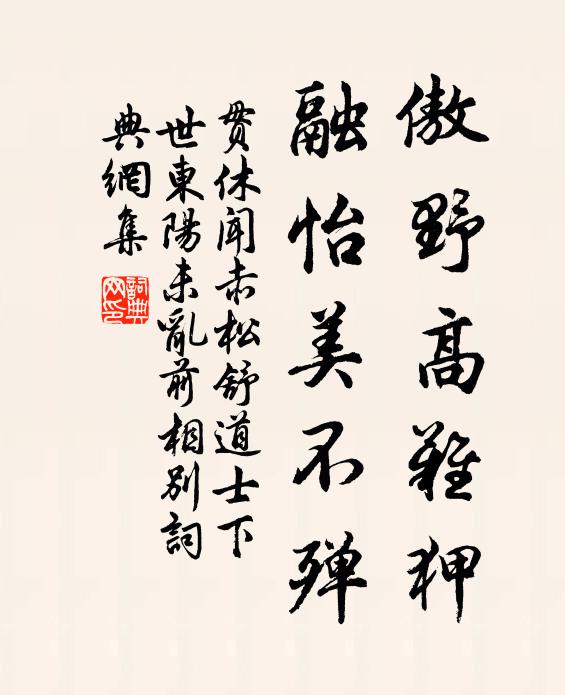 傲野高難狎
融怡美不殫
貫休聞赤松舒道士下
世東陽未亂前相別詞
典網集
詞典
网印